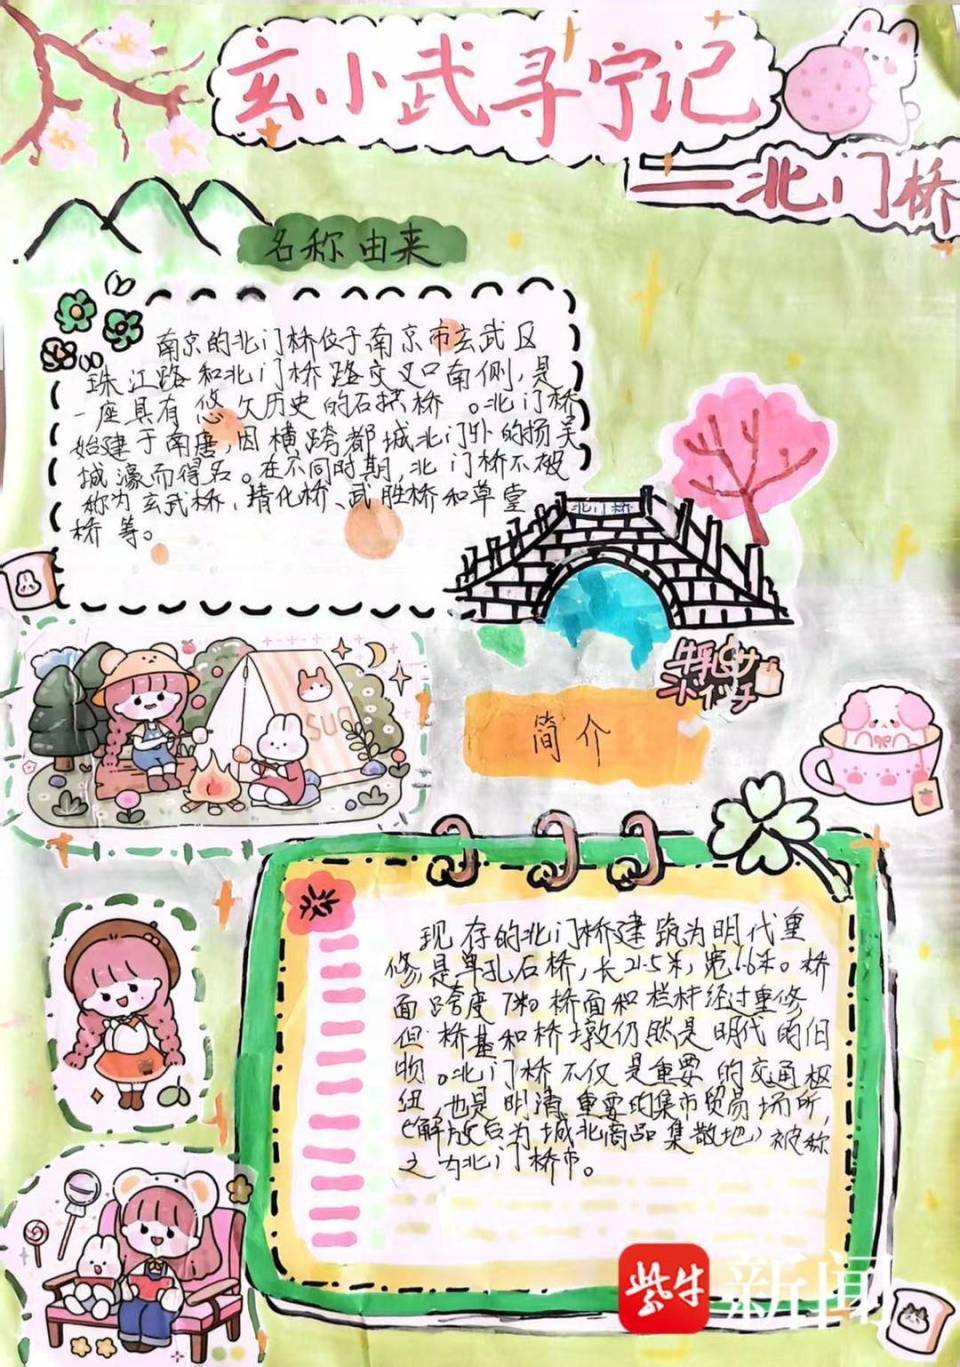 玄小武寻宁记
——北门桥
名称由来
南京的北门桥位于南京市玄武区
珠江路和北门桥路交叉口南侧,是
一座具有悠久历史的石拱桥。北门桥
始建于南唐,因横跨都城北门外的杨吴
城濠而得名。在不同时期,北门桥不被
称为玄武桥、清化桥、武胜桥和草堂
桥等。
北门桥
牛乳サ
ンドイッチ
SUQ
简介
现存的北门桥建筑为明代重
修,是单孔石桥,长21.5米,宽6.6米。桥
面跨度7米。桥面和栏杆经过重修
但桥基和桥墩仍然是明代的旧
物。北门桥不仅是重要的交通枢
纽,也是明清重要的集市贸易场所,
(解放后为城北商品集散地)被称
之为北门桥市。
紫牛新闻